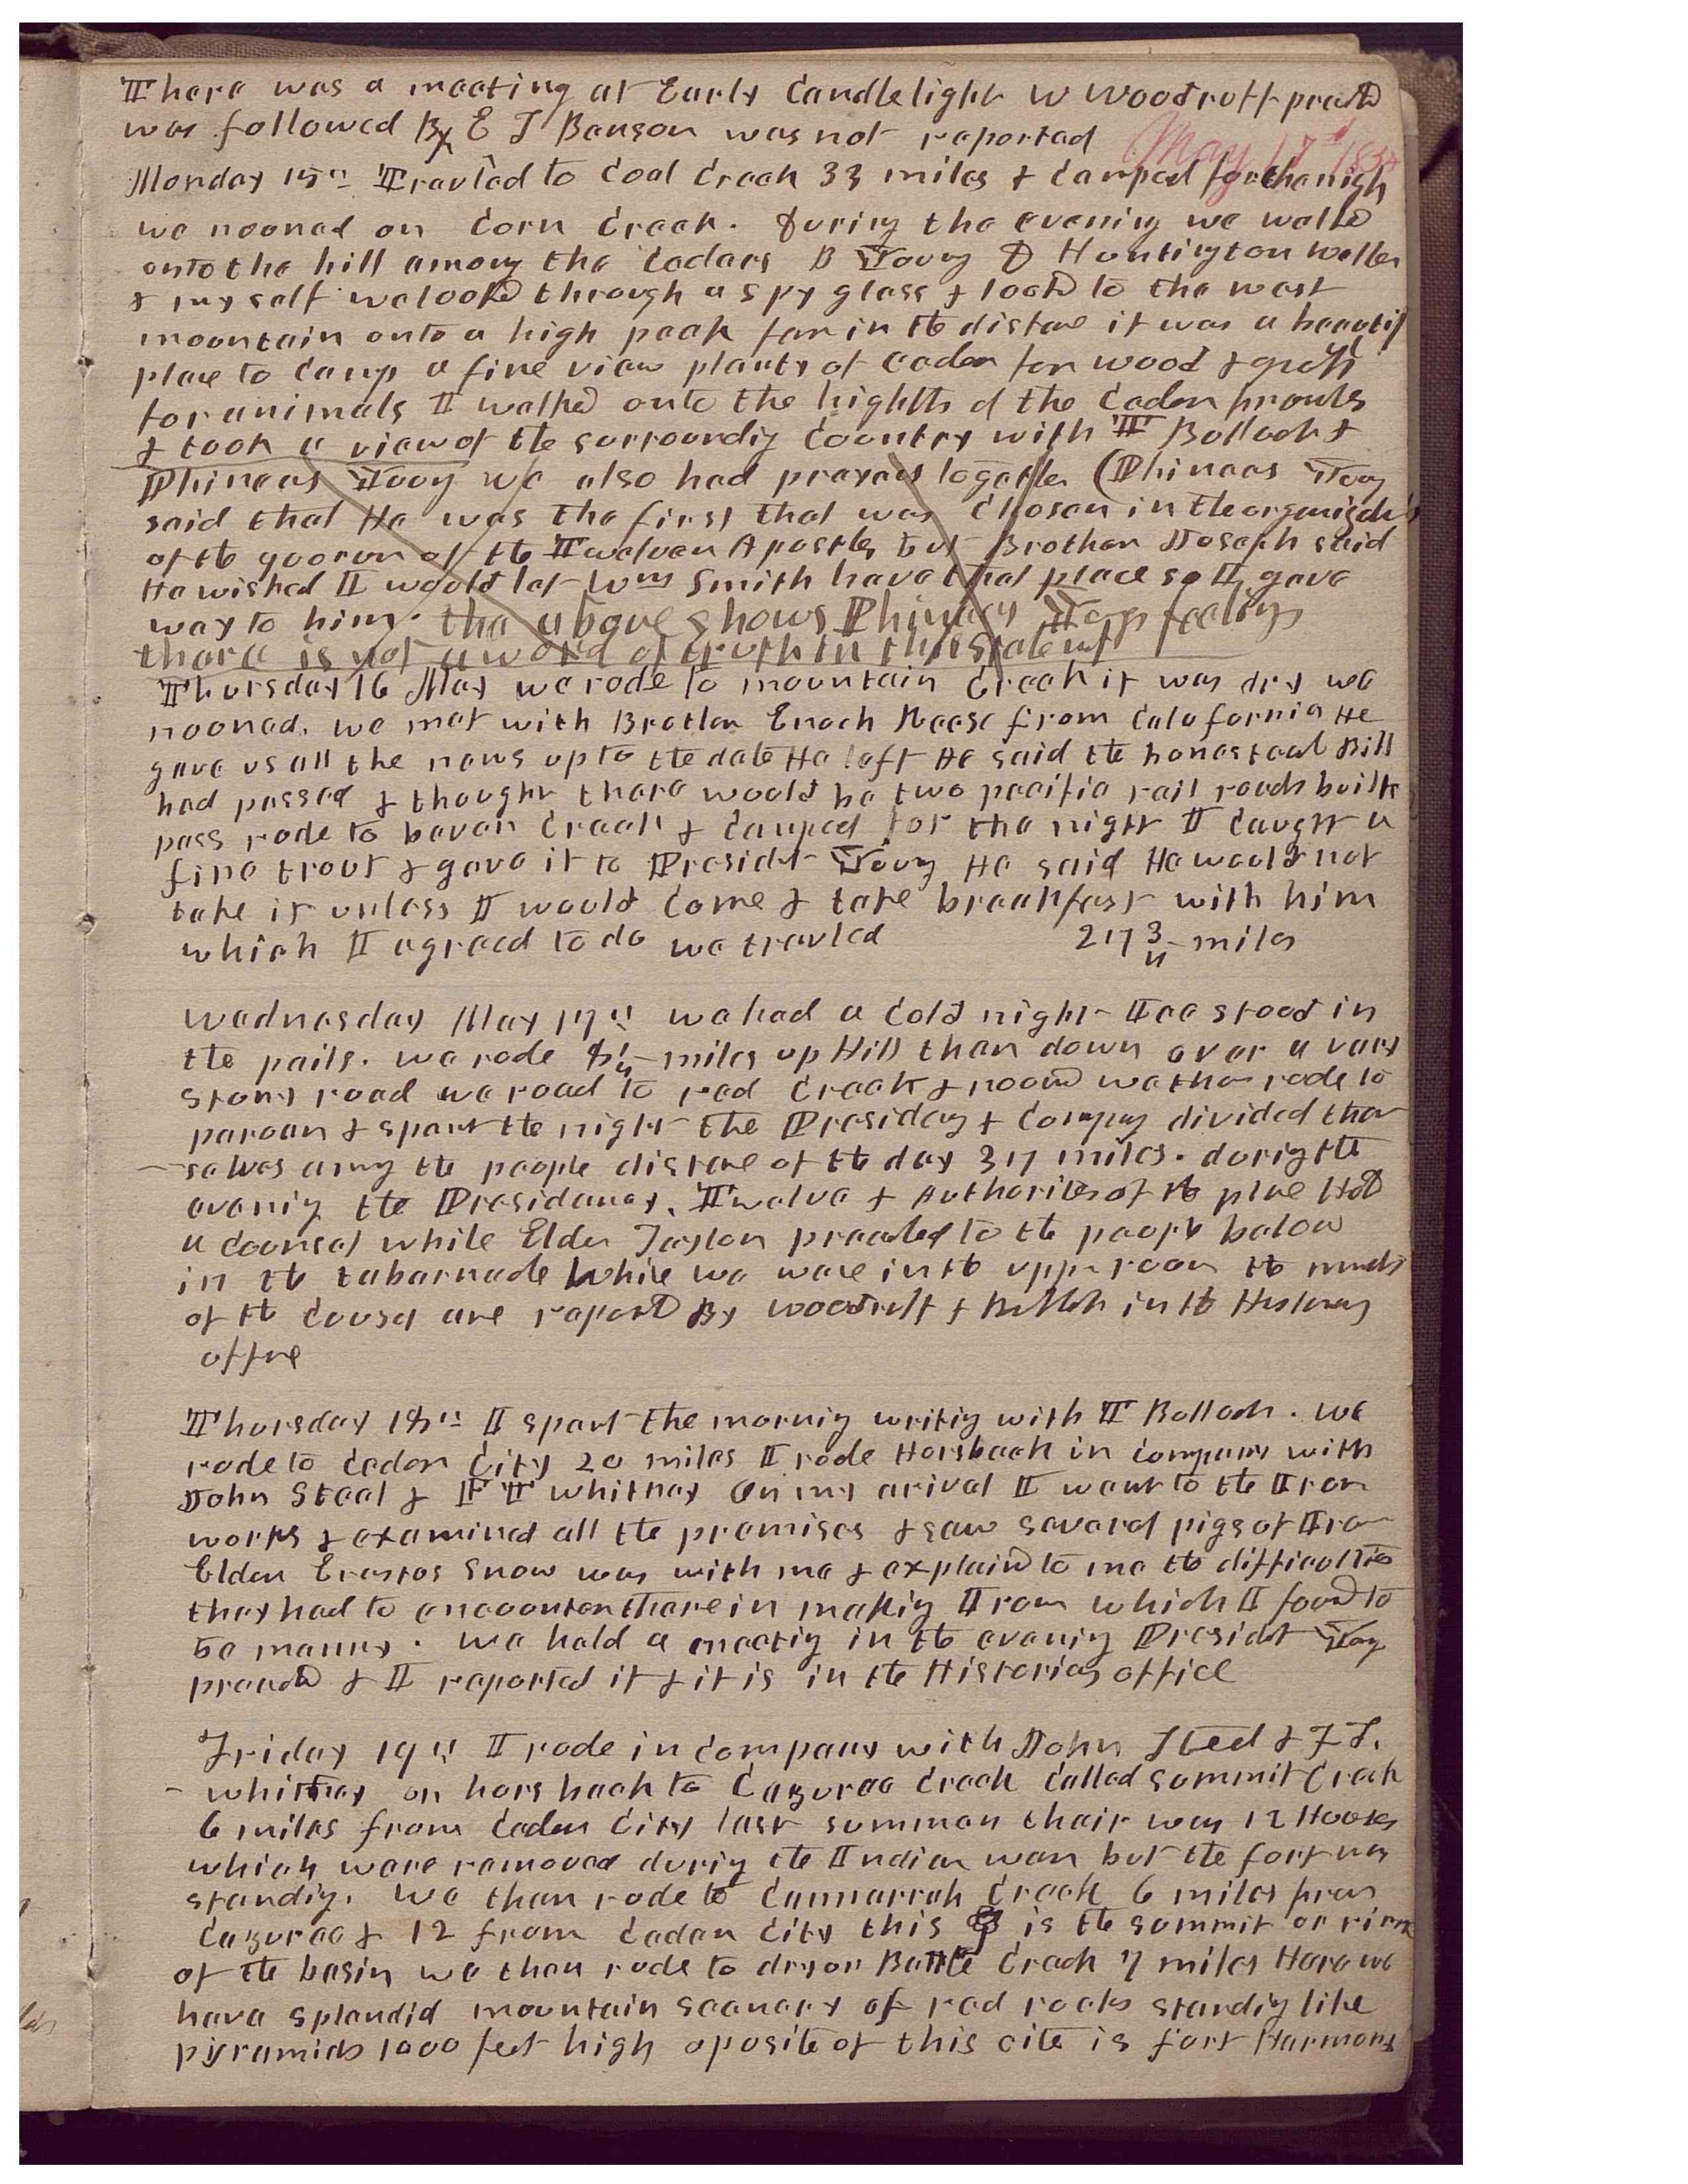 There was a meeting at Early Candlelight W Woodruff preachd
was followed By E T Benson was not reported
May 17th 1854
Monday 15th Traveled to Coal Creek 33 miles & camped for the nigh
we nooned on Corn Creek. During the evening we walkd
onto the hill among the Cedars B Young D Huntington Walker
& myself we lookd through a spy glass & lookd to the west
mountain onto a high peak far in the distance it was a beautif
place to camp a fine view plenty of ceder for wood & grass
for animals I walked onto the hights of the Ceder
& took a view of the surrounding Country with T Bullock &
Phineas Young we also had prayers together (Phineas Young
said that He was the first that was Chosen in the organizati
of the quorum of the Twelve Apostles but Brother Joseph said
He wished I would let Wm Smith have that place so I gave
way to him. the above shows Phineas Youngs feelings
there is not a word of truth in this statement
Thursday 16 May we rode to mountain Creek it was dry we
nooned. we met with Brother Enoch Reese from Calafornia He
gave us all the news up to the date He left He said the homestead Bill
had passed & thought there would be two pacific rail roads built
pass rode to bever Creek & camped for the night I caught a
fine trout & gave it to Presidet Young He said He would not
take it unless I would Come & take breakfast with him
which I agreed to do we traveled 27 3/4 miles
Wednesday May 17th we had a Cold night Ice stood in
the pails. we rode 8 1/4 miles up Hill then down over a very
stony road we road to red Creek & noond we then rode to
parowan & spent the night the Presidey & Compny divided them
selves amg the people distance of the day 37 miles. durig the
evenig the Presidency, Twelve & Authorites of the place Held
a Counsel while Elder Taylor preached to the people below
in the tabernacle while we were in the upper room the minuts
of the Counsel are report By Woodruff & Bullock in the History
office
Thursday 18th I spent the mornig writig with T Bullock. we
rode to Ceder City 20 miles I rode Horsback in Company with
John Steel & F T Whitney On my arival I went to the Iron
works & examined all the premises & saw several pigs of Iron
Elder Erastus Snow was with me & explaind to me the difficulties
they had to encounter there in makig Iron which I found to
be manny. we held a meetig in the evenig Presidet Young
preachd & I reported it & it is in the Historians office
Friday 19th I rode in Company with John Steel & F T.
Whitney on hors back to Cazuree Creek Called Summit Creek
6 miles from Ceder City last summer their was 12 Houses
which were removed durig the Indian war but the fort was
standig. We then rode to Cannarrah Creek 6 miles from
Cazuree & 12 from Cedar City this is the summit or rim
of the basin we then rode to dry or Battle Creek 7 miles Here we
have splendid mountain scenery of red rocks standig like
pyramids 1000 feet high oposite of this cite is fort Harmony